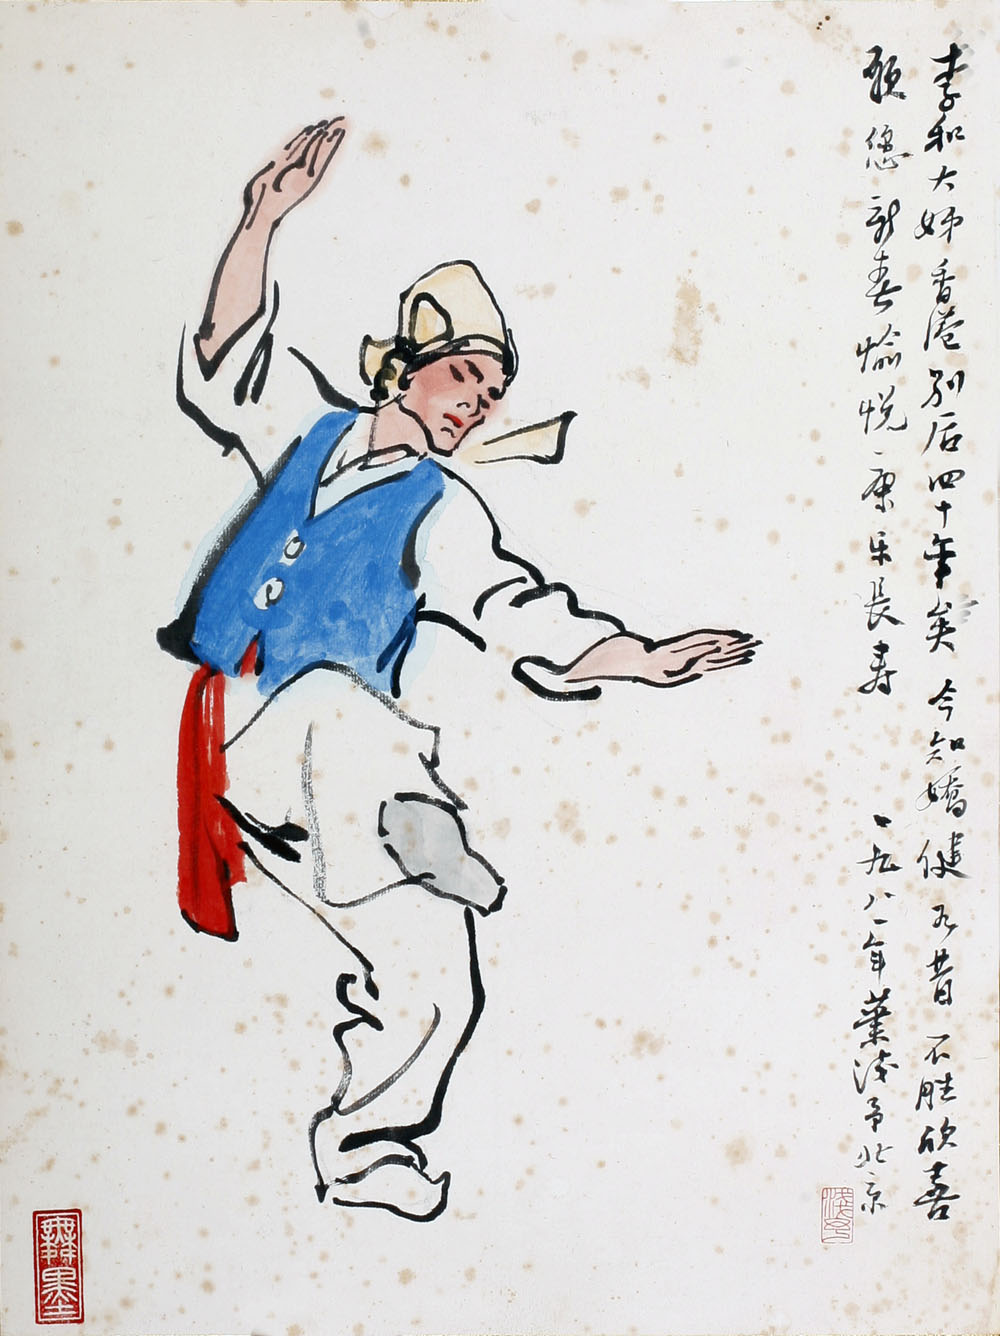 李和大姊香港别后四十年矣今知嬌健如昔不胜欣喜
顾您新春愉悦康乐長寿
一九八一年葉浅予北京
浅予
無墨士